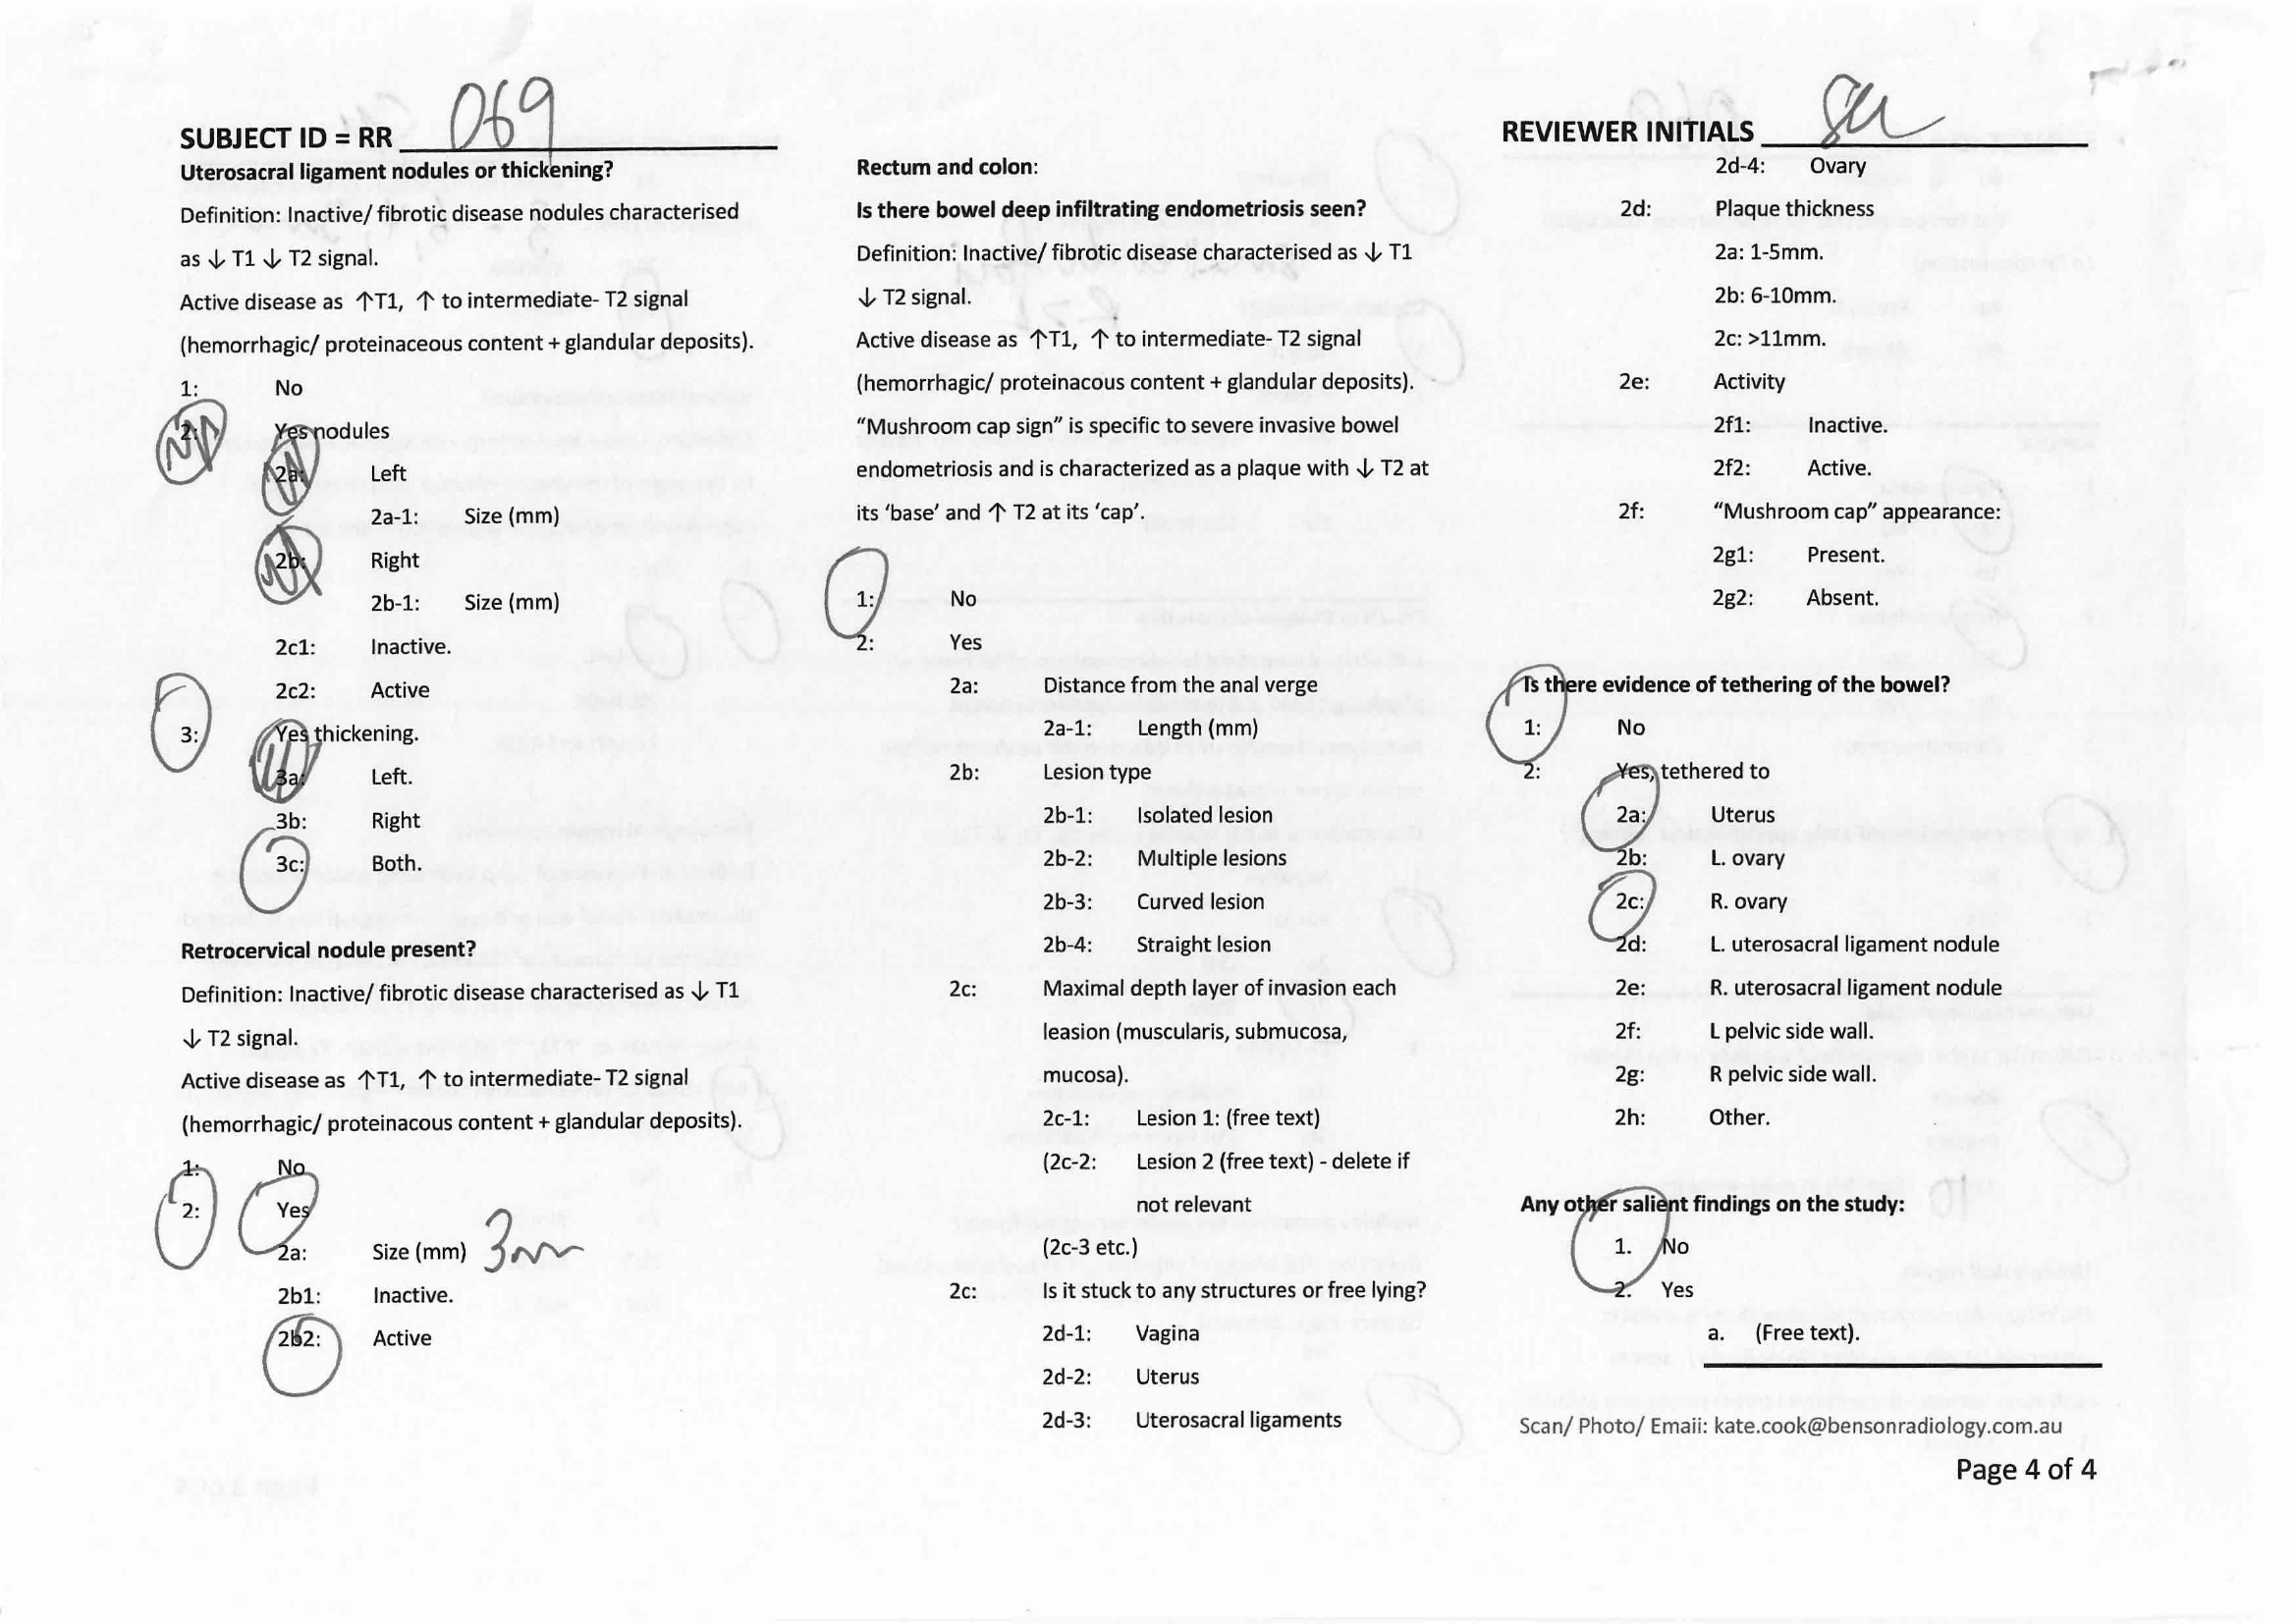 SUBJECT ID = RR 069
Uterosacral ligament nodules or thickening?
Definition: Inactive/ fibrotic disease nodules characterised
as ↓ T1 ↓ T2 signal.
Active disease as ↑T1, ↑ to intermediate- T2 signal
(hemorrhagic/ proteinaceous content + glandular deposits).
1: No
2: Yes nodules
2a: Left
2a-1: Size (mm)
2b: Right
2b-1: Size (mm)
2c1: Inactive.
2c2: Active
3: Yes thickening.
3a: Left.
3b: Right
3c: Both.
Retrocervical nodule present?
Definition: Inactive/ fibrotic disease characterised as ↓ T1
↓ T2 signal.
Active disease as ↑T1, ↑ to intermediate- T2 signal
(hemorrhagic/ proteinacous content + glandular deposits).
1: No
2: Yes
2a: Size (mm) 3mm
2b1: Inactive.
2b2: Active
Rectum and colon:
Is there bowel deep infiltrating endometriosis seen?
Definition: Inactive/ fibrotic disease characterised as ↓ T1
↓ T2 signal.
Active disease as ↑T1, ↑ to intermediate- T2 signal
(hemorrhagic/ proteinacous content + glandular deposits).
“Mushroom cap sign” is specific to severe invasive bowel
endometriosis and is characterized as a plaque with ↓ T2 at
its ‘base’ and ↑ T2 at its ‘cap’.
1: No
2: Yes
2a: Distance from the anal verge
2a-1: Length (mm)
2b: Lesion type
2b-1: Isolated lesion
2b-2: Multiple lesions
2b-3: Curved lesion
2b-4: Straight lesion
2c: Maximal depth layer of invasion each
leasion (muscularis, submucosa,
mucosa).
2c-1: Lesion 1: (free text)
(2c-2: Lesion 2 (free text) - delete if
not relevant
(2c-3 etc.)
2c: Is it stuck to any structures or free lying?
2d-1: Vagina
2d-2: Uterus
2d-3: Uterosacral ligaments
REVIEWER INITIALS
2d-4: Ovary
2d: Plaque thickness
2a: 1-5mm.
2b: 6-10mm.
2c: >11mm.
2e: Activity
2f1: Inactive.
2f2: Active.
2f: “Mushroom cap” appearance:
2g1: Present.
2g2: Absent.
Is there evidence of tethering of the bowel?
1: No
2: Yes, tethered to
2a: Uterus
2b: L. ovary
2c: R. ovary
2d: L. uterosacral ligament nodule
2e: R. uterosacral ligament nodule
2f: L pelvic side wall.
2g: R pelvic side wall.
2h: Other.
Any other salient findings on the study:
1. No
2. Yes
a. (Free text).
Scan/ Photo/ Email: kate.cook@bensonradiology.com.au
Page 4 of 4